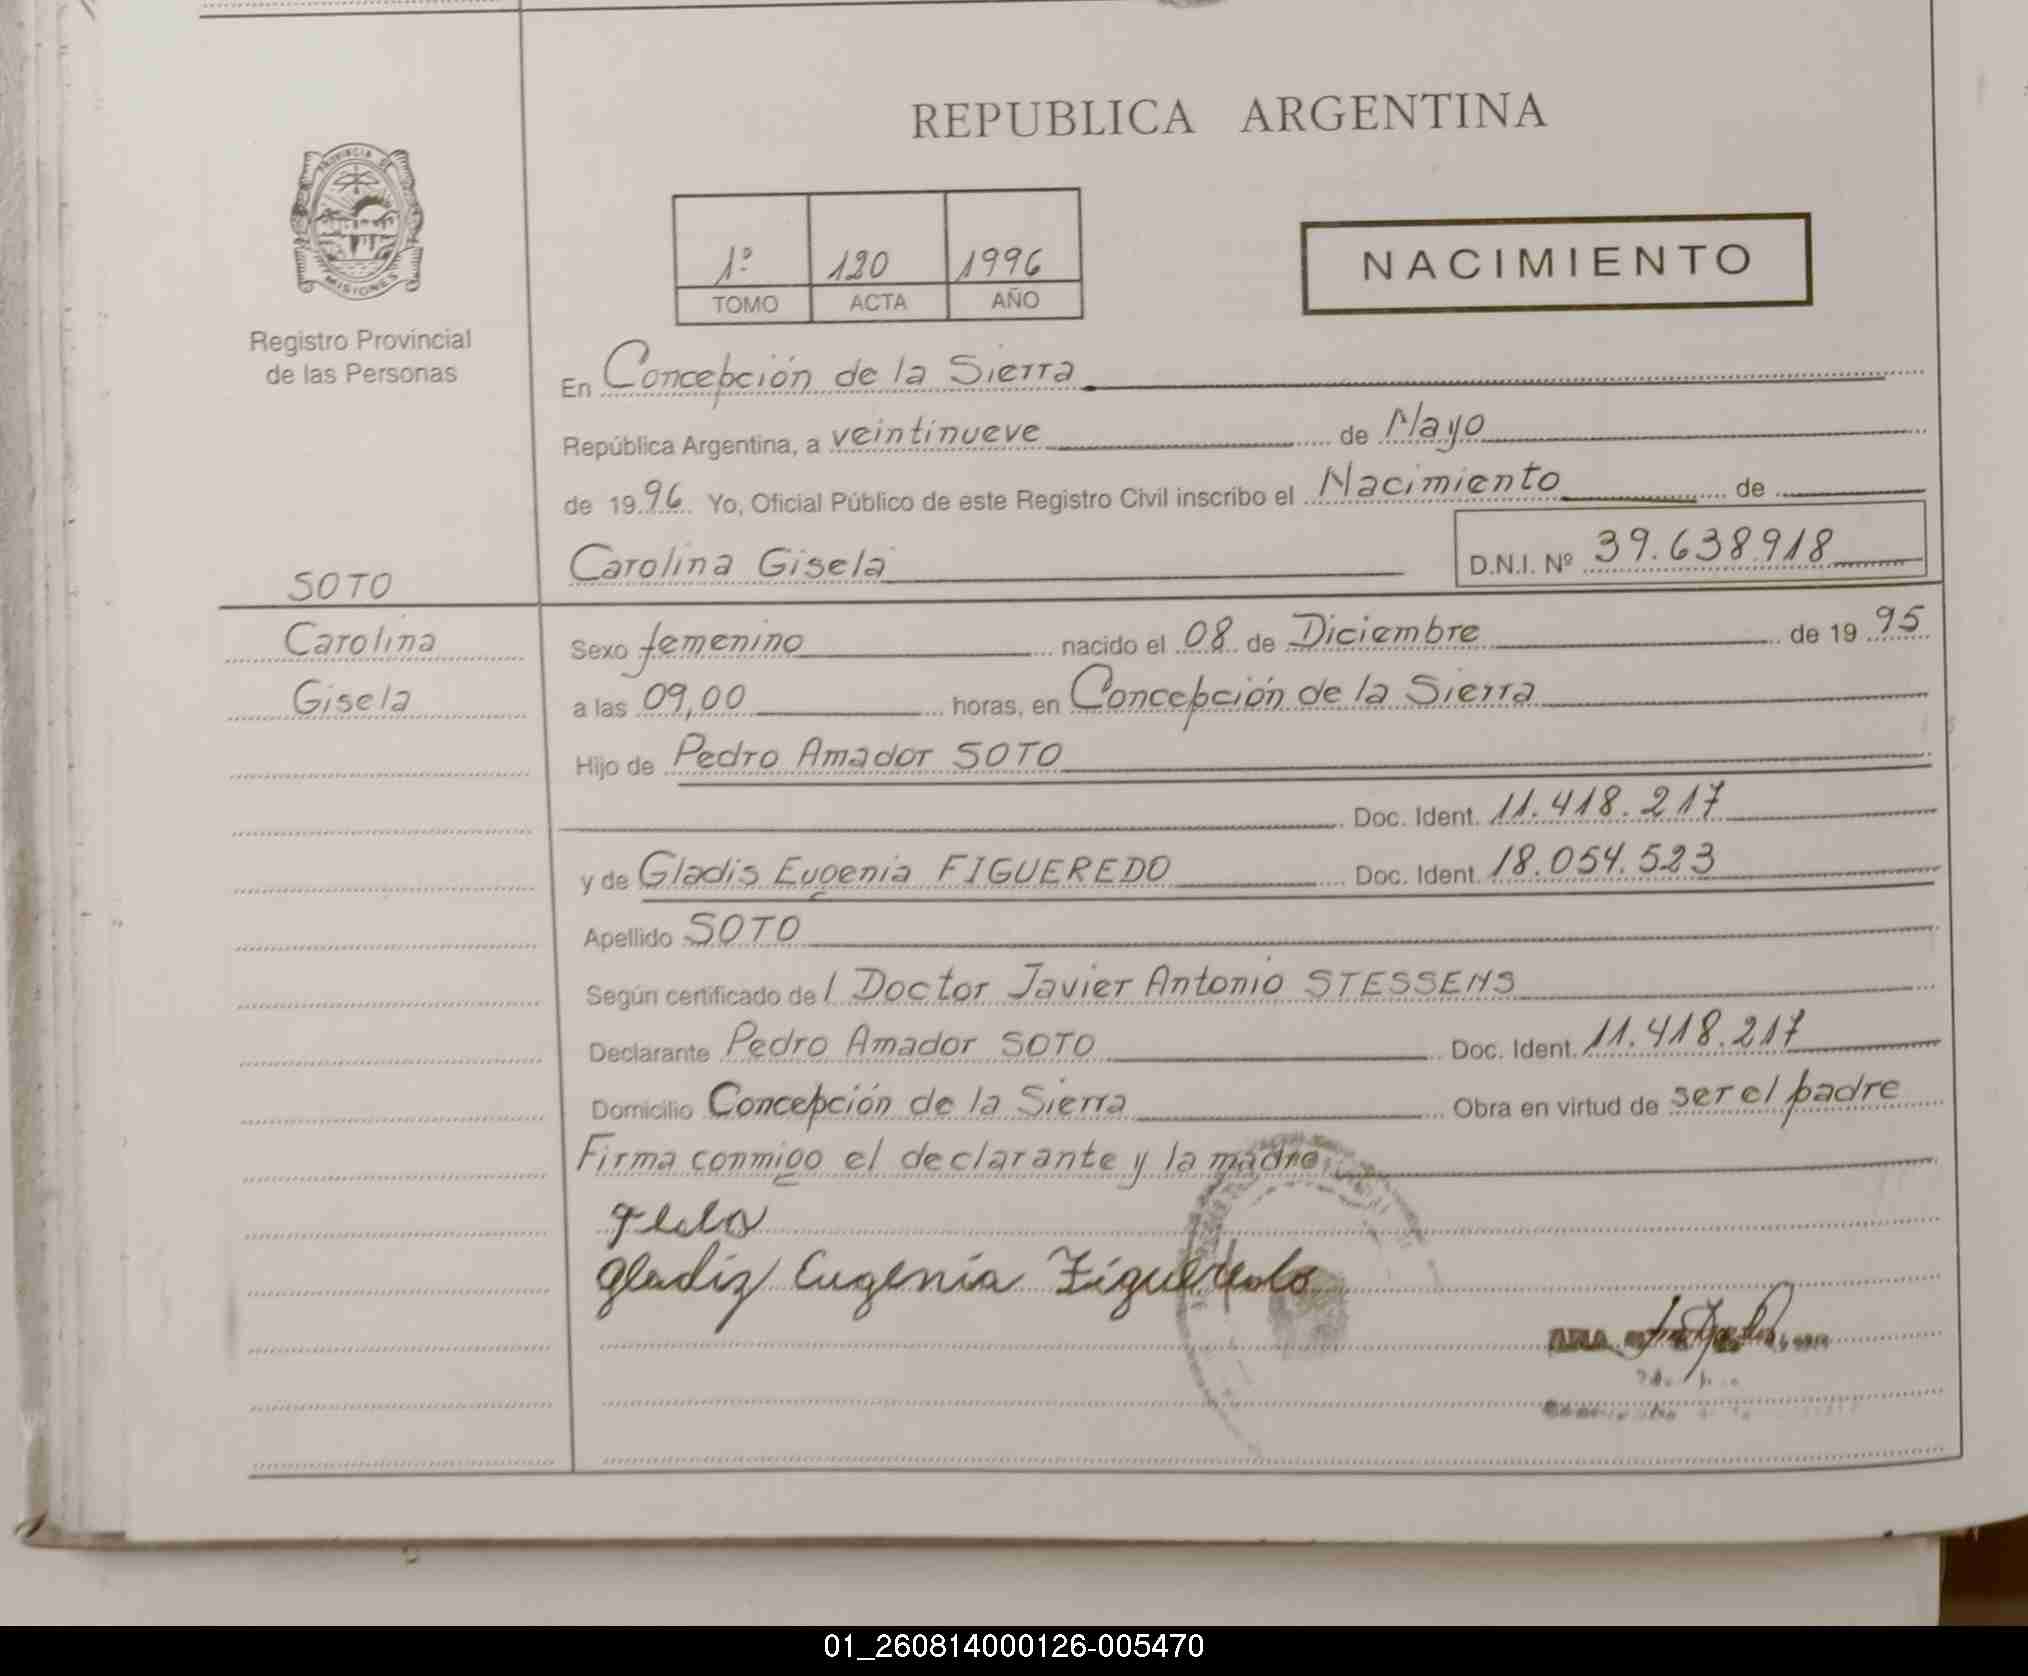 REPUBLICA ARGENTINA
PROVINCIA DE
MISIONES
Registro Provincial
de las Personas
1º 120 1996
TOMO ACTA AÑO
NACIMIENTO
En Concepción de la Sierra
República Argentina, a veintinueve de Mayo
de 1996 Yo, Oficial Público de este Registro Civil inscribo el Nacimiento de
Carolina Gisela D.N.I. Nº 39.638.918
SOTO
Carolina
Gisela
Sexo femenino nacido el 08 de Diciembre de 1995
a las 09,00 horas, en Concepción de la Sierra
Hijo de Pedro Amador SOTO
Doc. Ident. 11.418.217
y de Gladis Eugenia FIGUEREDO Doc. Ident. 18.054.523
Apellido SOTO
Según certificado del Doctor Javier Antonio STESSENS
Declarante Pedro Amador SOTO Doc. Ident. 11.418.217
Domicilio Concepción de la Sierra Obra en virtud de ser el padre
Firma conmigo el declarante y la madre
Gladiz Eugenia Figueredo
01_260814000126-005470